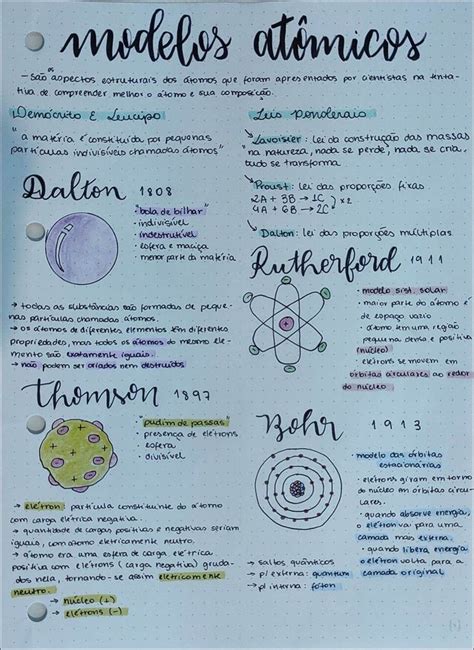 modelos atômicos
- São aspectos estruturais dos átomos que foram apresentados por cientistas na tenta-
tiva de compreender melhor o átomo e sua composição.
Demócrito E Leucipo
"a matéria é constituída por pequenas
partículas indivisíveis chamadas átomos"
Leis Ponderais
Lavoisier: lei da construção das massas
"na natureza, nada se perde, nada se cria,
tudo se transforma.
Proust: lei das proporções fixas
2A + 3B → 1C
4A + 6B → 2C
x2
Dalton: lei das proporções múltiplas
Dalton 1808
"bola de bilhar"
• indivisível
• indestrutível
• esfera e maciça
• menor parte da matéria
→ todas as substâncias são formadas de peque-
nas partículas chamadas átomos.
→ os átomos de diferentes elementos têm diferentes
propriedades, mas todos os átomos do mesmo ele-
mento são exatamente iguais.
→ não podem ser criados nem destruídos
Rutherford 1911
• modelo sist. solar
• maior parte do átomo é
de espaço vazio
• átomo tem uma região
pequena densa e positiva
(núcleo)
• elétrons se movem em
órbitas circulares ao redor
do núcleo
Thomson 1897
"pudim de passas"
• presença de elétrons
• esfera
• divisível
→ elétron: partícula constituinte do átomo
com carga elétrica negativa.
→ quantidade de cargas positivas e negativas seriam
iguais, com átomo eletricamente neutro.
→ átomo era uma esfera de carga elétrica
positiva com elétrons (carga negativa) gruda-
dos nela, tornando-se assim eletricamente
neutro.
→ núcleo (+)
→ elétrons (-)
Bohr 1913
• modelo das órbitas
estacionárias
• elétrons giram em torno
do núcleo em órbitas circu-
lares.
• quando absorve energia,
o elétron vai para uma
camada mais externa.
• quando libera energia
o elétron volta para a
camada original
→ saltos quânticos
→ p/ externa: quantum
→ p/ interna: fóton